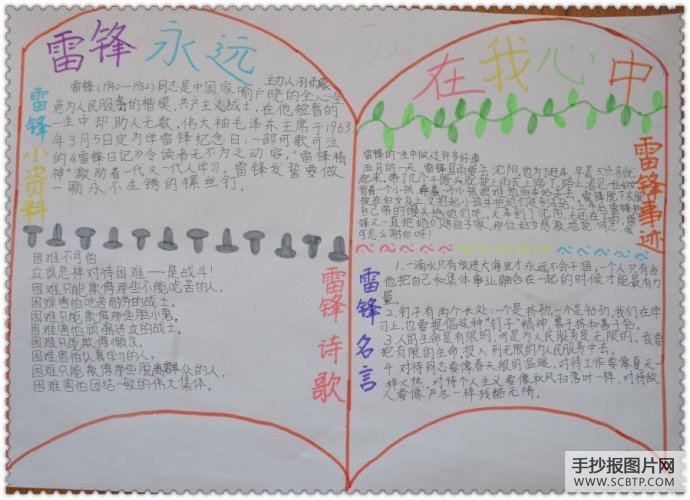 雷锋永远
在我心中
雷锋小资料
雷锋(1940—1962)同志是中国家喻户晓的全心全
意为人民服务的楷模,共产主义战士,在他短暂的
一生中却助人无数,伟大袖毛泽东主席于1963
年3月5日定为学雷锋纪念日:一部可歌可泣
的《雷锋日记》令读者无不为之动容,"雷锋精
神"激励着一代又一代人学习。雷锋发誓要做
一颗永不生锈的螺丝钉。
雷锋诗歌
困难不可怕
应该怎样对待困难——是战斗!
困难只能欺侮那些不能吃苦的人,
困难害怕吃苦耐劳的战士。
困难只能欺侮那些胆小鬼,
困难害怕顽强进攻的战士。
困难只能欺侮懒汉,
困难害怕认真学习的人。
困难只能欺侮那些脱离群众的人,
困难害怕团结一致的伟大集体。
雷锋事迹
雷锋的一生中做过许多好事
五月的一天,雷锋冒雨要去沈阳,他为了赶车,早晨5点多就
起来,带了几个干馒头就披上雨衣上路了,路上,看见一位妇女
雷锋名言
1.一滴水只有放进大海里才永远不会干涸,一个人只有当
他把自己和集体事业融合在一起的时候才能最有力
量。
2.钉子有两个长处:一个是挤劲,一个是钻劲,我们在学
习上,也要提倡这种"钉子"精神,善于挤和善于钻。
3.人的生命是有限的,可是为人民服务是无限的,我要
把有限的生命,投入到无限的为人民服务中去。
4.对待同志要像春天般的温暖,对待工作要像夏天一
样火热,对待个人主义要像秋风扫落叶一样,对待敌
人要像严冬一样残酷无情。
手抄报图片网
WWW.SCBTP.COM